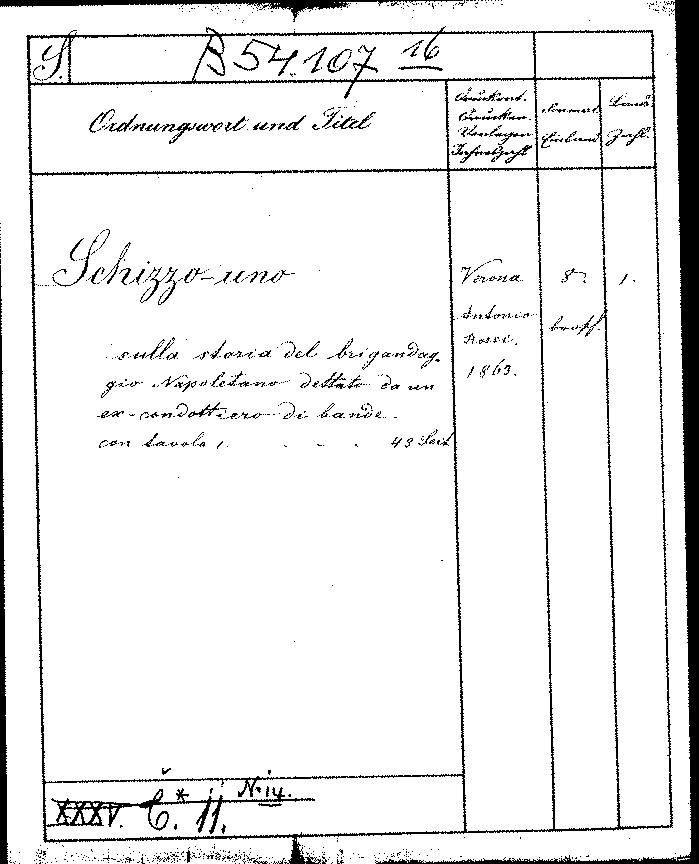 S. B 54.107 16
Ordnungswort und Titel
Druckort. Drucker. Verleger Jahreszahl
Format. Einband
Band Zahl.
Schizzo-uno
sulla storia del brigandag-
gio Napoletano dettato da un
ex-condottiero di bande.
con tavola 1. - - - 43 Seit
Verona
Antonio
Rossi.
1863.
8.
brosch.
1.
XXXV. C.* 11. N. 14.